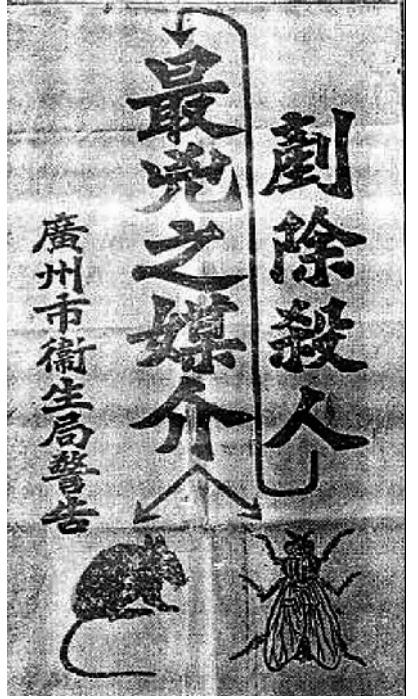 剷除殺人
最兇之媒介
廣州市衞生局警告